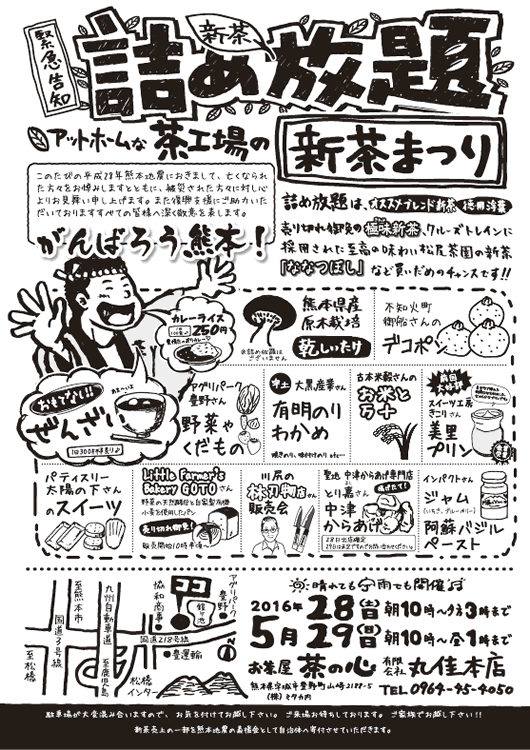 緊急告知
新茶
詰め放題
アットホームな茶工場の
新茶まつり
このたびの平成28年熊本地震におきまして、亡くなられ
た方々をお悼みしますとともに、被災された方々に対し心
よりお見舞い申し上げます。また復興支援にご助力いた
だいておりますすべての皆様へ深く敬意を表します。
がんばろう熊本！
詰め放題は、オススメブレンド新茶 徳用浮葉
売り切れ御免の極味新茶、クルーズトレインに
採用された至高の味わい松尾茶園の新茶
「ななつぼし」など買いだめのチャンスです!!
カレーライス
250円
熊本県産
原木栽培
乾しいたけ
※詰め放題はございません
不知火町
御船さんの
デコポン
おもてなし!!
ぜんざい
1日300杯
アグリパーク
豊野さん
野菜や
くだもの
大黒産業さん
有明のり
わかめ
焼きのり、味付けのり etc…
古本米穀さんの
お米と
万十
スイーツ工房
きこりさん
美里
プリン
パティスリー
太陽の下さん
のスイーツ
Little Farmer's
Bakery GOTOさん
野菜の天然酵母と自家製有機
小麦を使用したパン
売り切れ御免!
販売開始10時半頃〜
川尻の
林刃物店さん
販売会
聖地 中津からあげ専門店
とり嘉さん
揚げたて!
中津
からあげ
28日出店確定
インパクトさん
ジャム
(いちご、ブルーベリー)
阿蘇バジル
ペースト
至熊本市
国道3号線
至松橋
九州自動車道
至鹿児島
松橋
インター
協和商事
ココ
鐙ヶ池
アグリパーク
豊野
国道218号線
豊運輸
晴れても雨でも開催
2016年
5月
28(土)朝10時〜夕3時まで
29(日)朝10時〜昼1時まで
お茶屋 茶の心 有限会社 丸佳本店
熊本県宇城市豊野町山崎2188-5
TEL 0964-45-4050
駐車場が大変混み合いますので、お気を付けてお越し下さい。ご来場お待ちしております。ご家族でお越し下さい!!
新茶売上の一部を熊本地震の義援金として自治体へ寄付させていただきます。